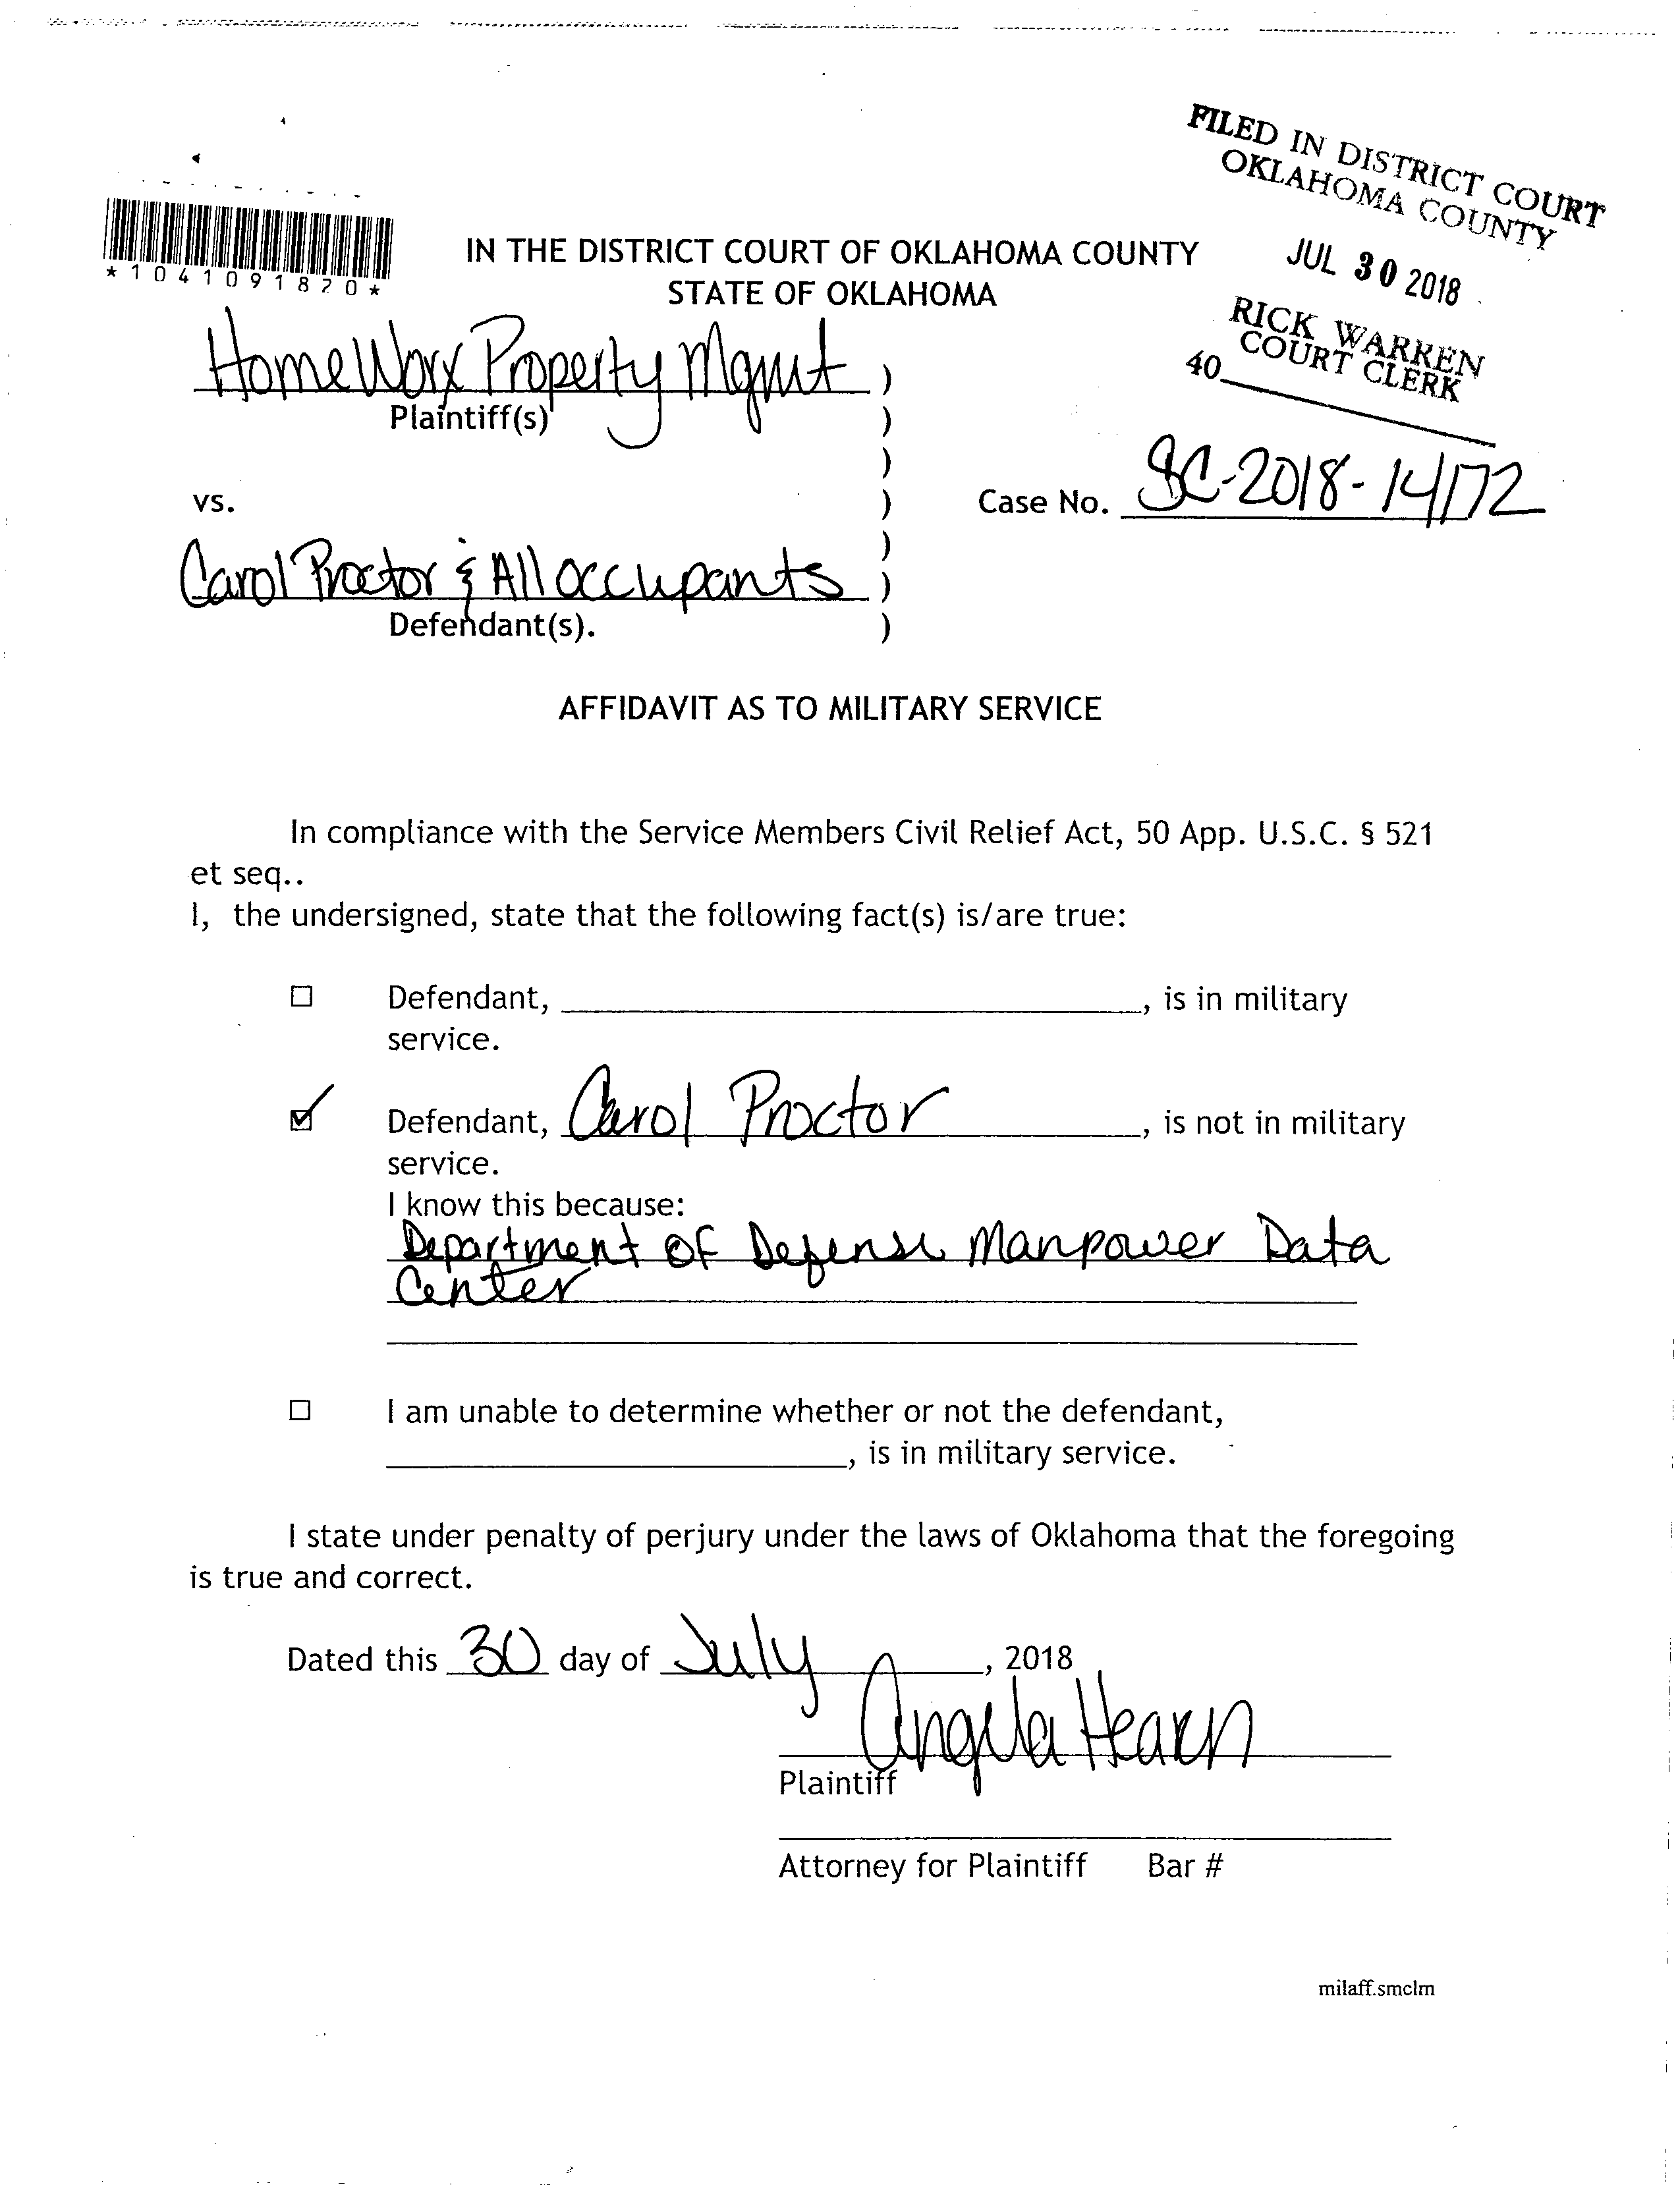 FILED IN DISTRICT COURT
OKLAHOMA COUNTY
JUL 30 2018
RICK WARREN
COURT CLERK
40
*1041091820*
IN THE DISTRICT COURT OF OKLAHOMA COUNTY
STATE OF OKLAHOMA
HomeWorx Property Mgmt )
Plaintiff(s) )
)
vs. ) Case No. SC-2018-14172
)
Carol Proctor & All occupants )
Defendant(s). )
AFFIDAVIT AS TO MILITARY SERVICE
In compliance with the Service Members Civil Relief Act, 50 App. U.S.C. § 521
et seq..
I, the undersigned, state that the following fact(s) is/are true:
☐ Defendant, ____________________, is in military
service.
☑ Defendant, Carol Proctor, is not in military
service.
I know this because:
Department of Defense Manpower Data
Center
☐ I am unable to determine whether or not the defendant,
____________________, is in military service.
I state under penalty of perjury under the laws of Oklahoma that the foregoing
is true and correct.
Dated this 30 day of July, 2018
Angela Hearn
Plaintiff
Attorney for Plaintiff Bar #
milaff.smclm